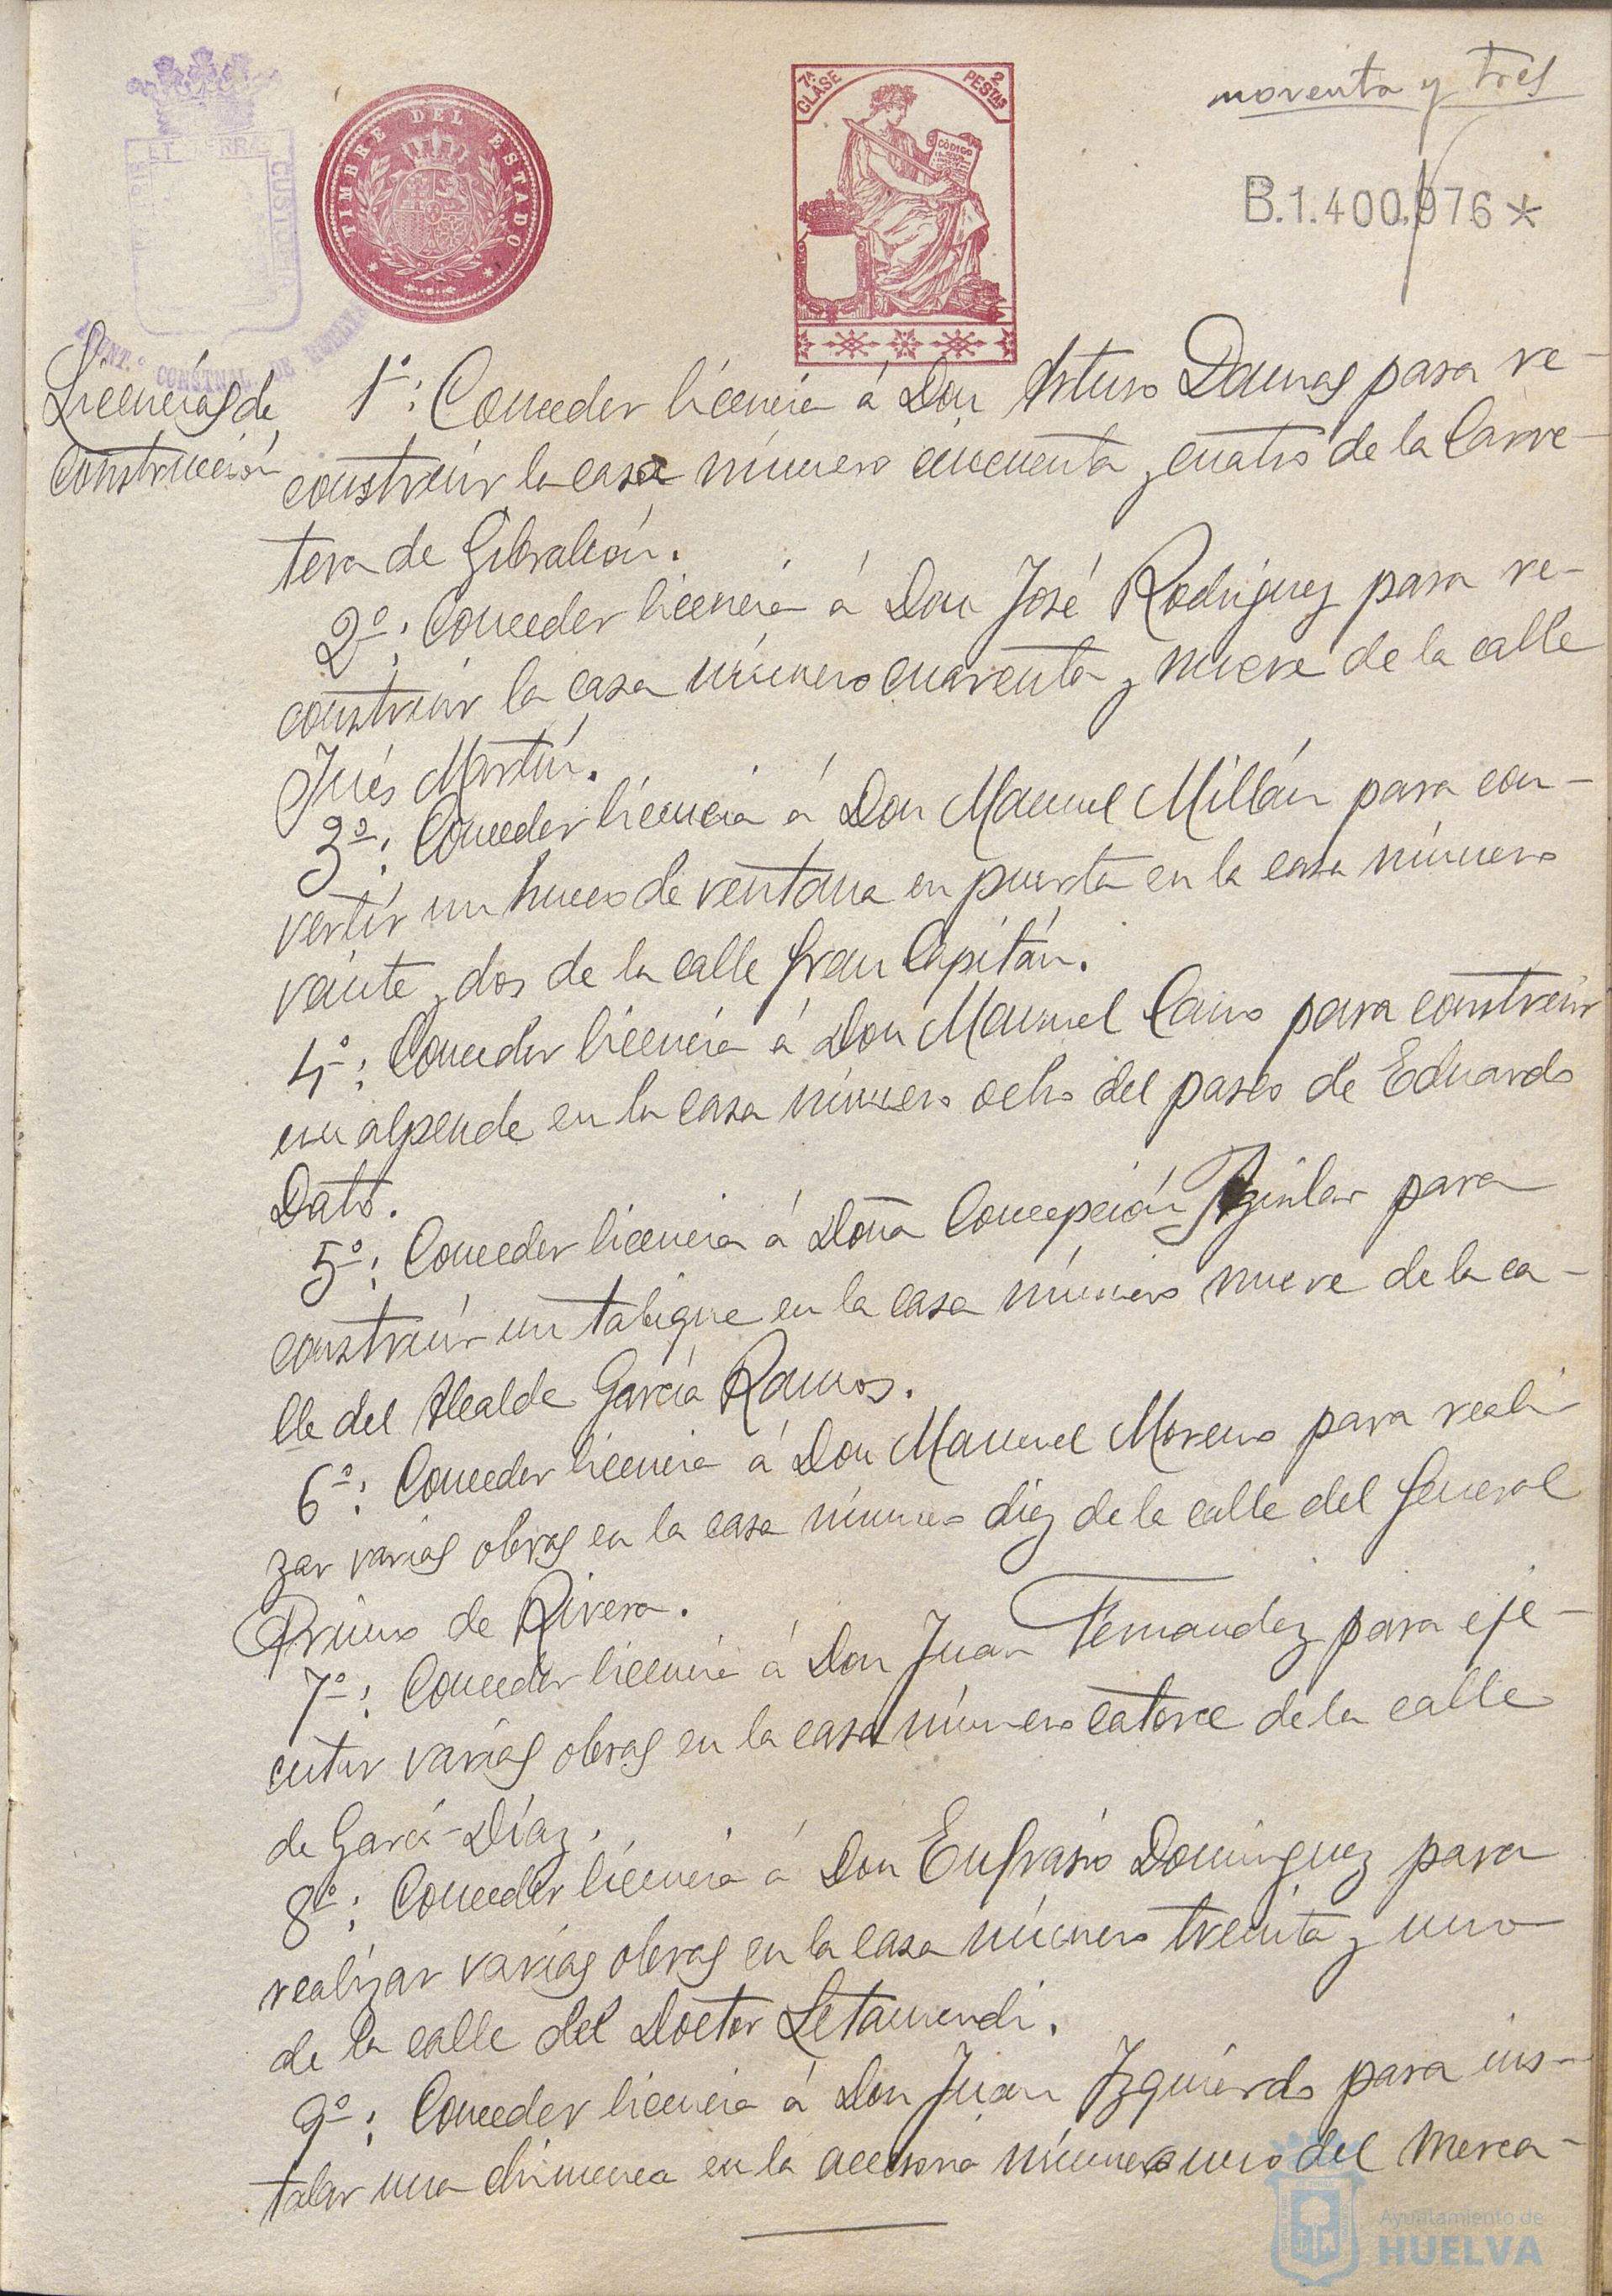 noventa y tres
7ª CLASE
2 PESTAS
CÓDIGO
TIMBRE DEL ESTADO
B.1.400.976*
CUSTODIA
AYUNT.º CONSTNAL. DE HUELVA
Licencias de
construcción
1º: Conceder licencia á Don Arturo Damas para re-
construir la casa número cincuenta y cuatro de la Carre-
tera de Gibraleón.
2º: Conceder licencia á Don José Rodriguez para re-
construir la casa número cuarenta y nueve de la calle
Inés Martín.
3º: Conceder licencia á Don Manuel Millán para con-
vertir un hueco de ventana en puerta en la casa número
veinte y dos de la calle Gran Capitán.
4º: Conceder licencia á Don Manuel Cano para construir
un alpende en la casa número ocho del paseo de Eduardo
Dato.
5º: Conceder licencia á Doña Concepción Aguilar para
construir un tabique en la casa número nueve de la ca-
lle del Alcalde García Ramos.
6º: Conceder licencia á Don Manuel Moreno para reali-
zar varias obras en la casa número diez de la calle del General
Primo de Rivera.
7º: Conceder licencia á Don Juan Fernandez para eje-
cutar varias obras en la casa número catorce de la calle
de Garci-Díaz.
8º: Conceder licencia á Don Eufrasio Dominguez para
realizar varias obras en la casa número treinta y uno
de la calle del Doctor Letamendi.
9º: Conceder licencia á Don Juan Izquierdo para ins-
talar una chimenea en la accesoria número uno del Merca-
Ayuntamiento de
HUELVA